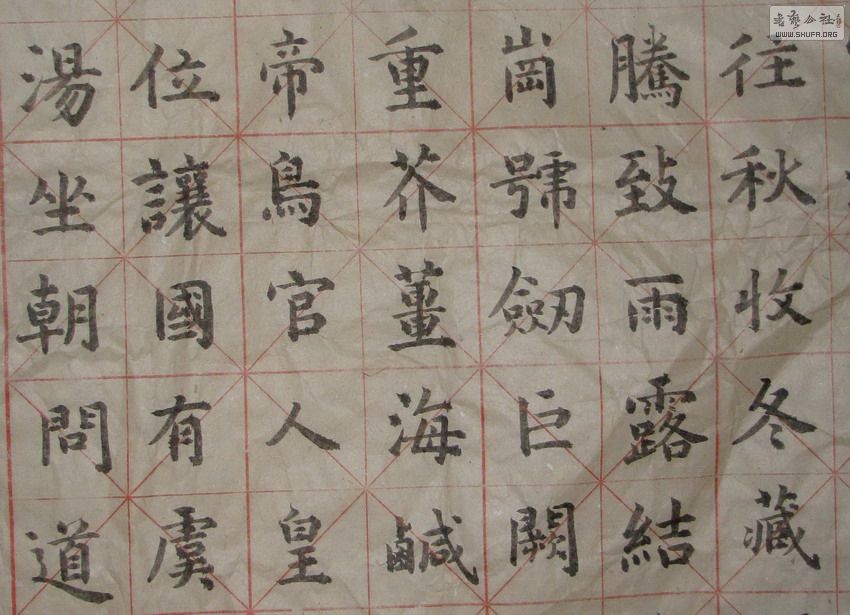 往秋收冬藏
騰致雨露結
崗號劒巨闕
重芥薑海鹹
帝鳥官人皇
位讓國有虞
湯坐朝問道
WWW.SHUFA.ORG